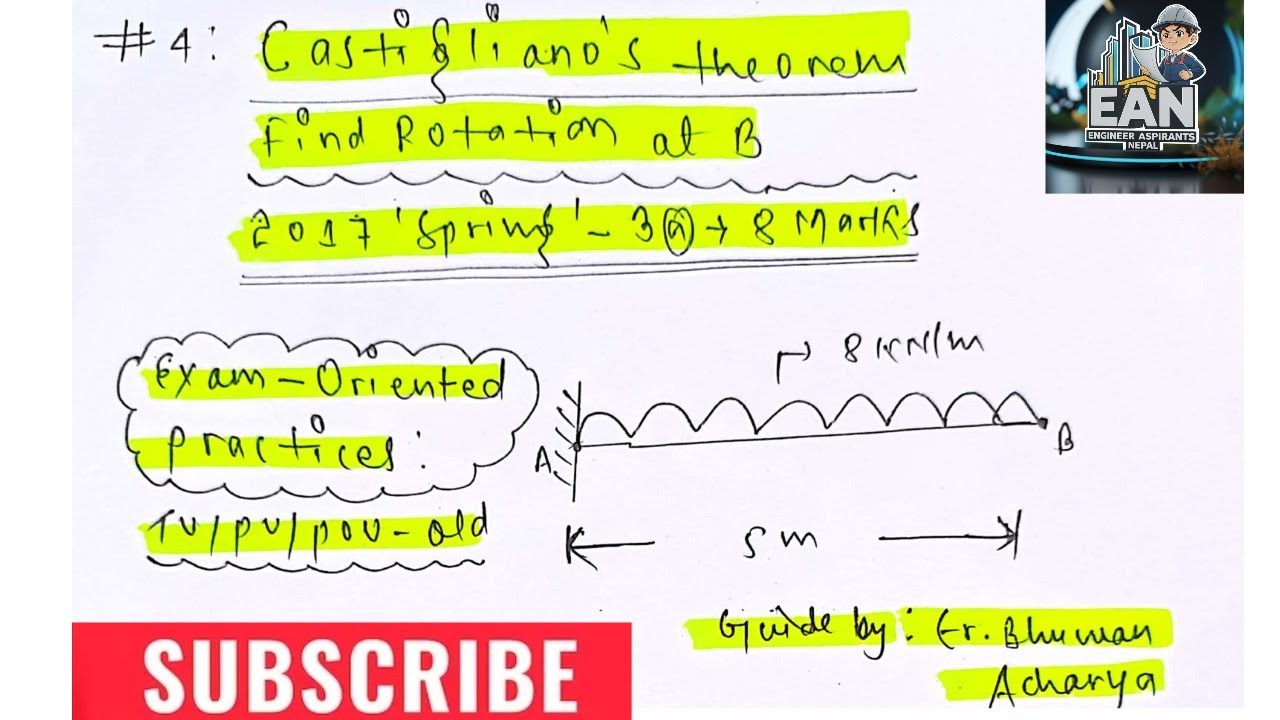 #4: Castigliano's theorem
Find Rotation at B
2017 'spring' - 3(a) → 8 Marks
EAN
ENGINEER ASPIRANTS
NEPAL
Exam-Oriented
practices:
TU/PU/POU-old
8 KN/m
A
B
5 m
Guide by: Er. Bhuwan
Acharya
SUBSCRIBE